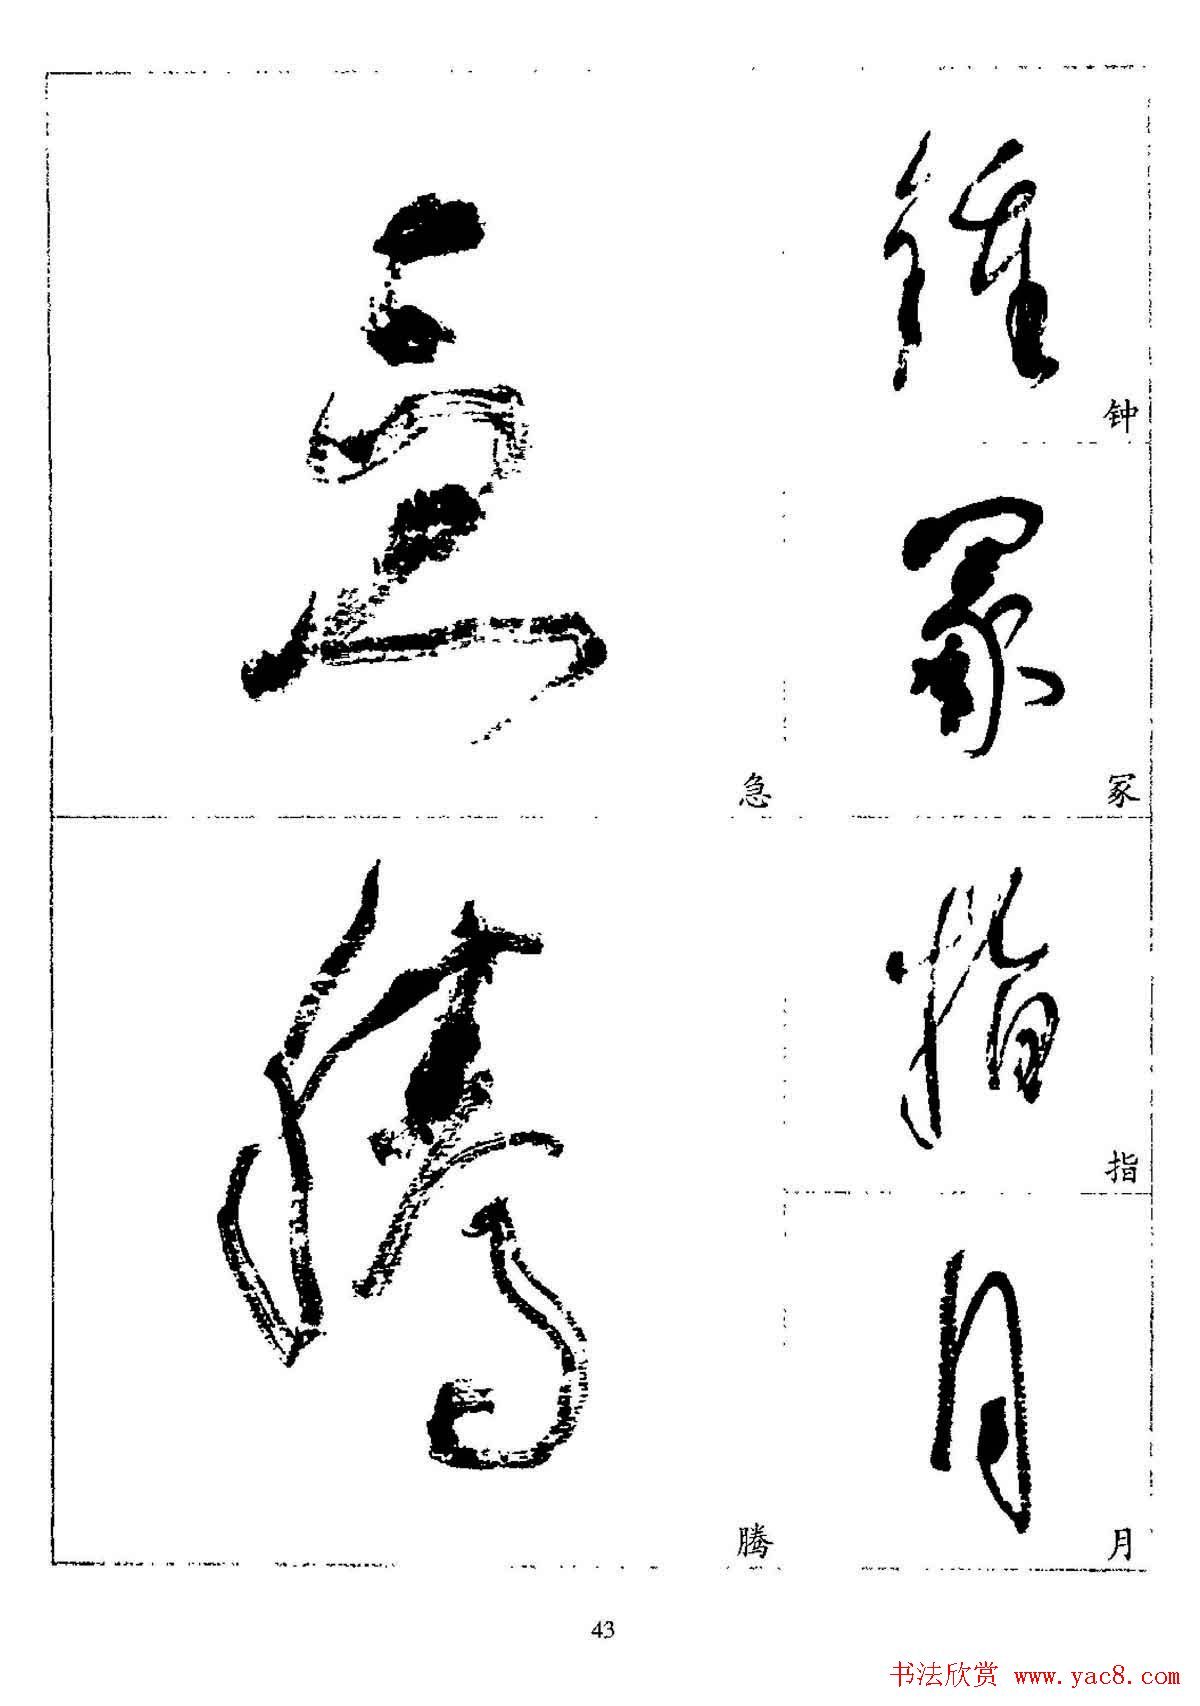 钟
冢
急
指
月
腾
43
书法欣赏 www.yac8.com